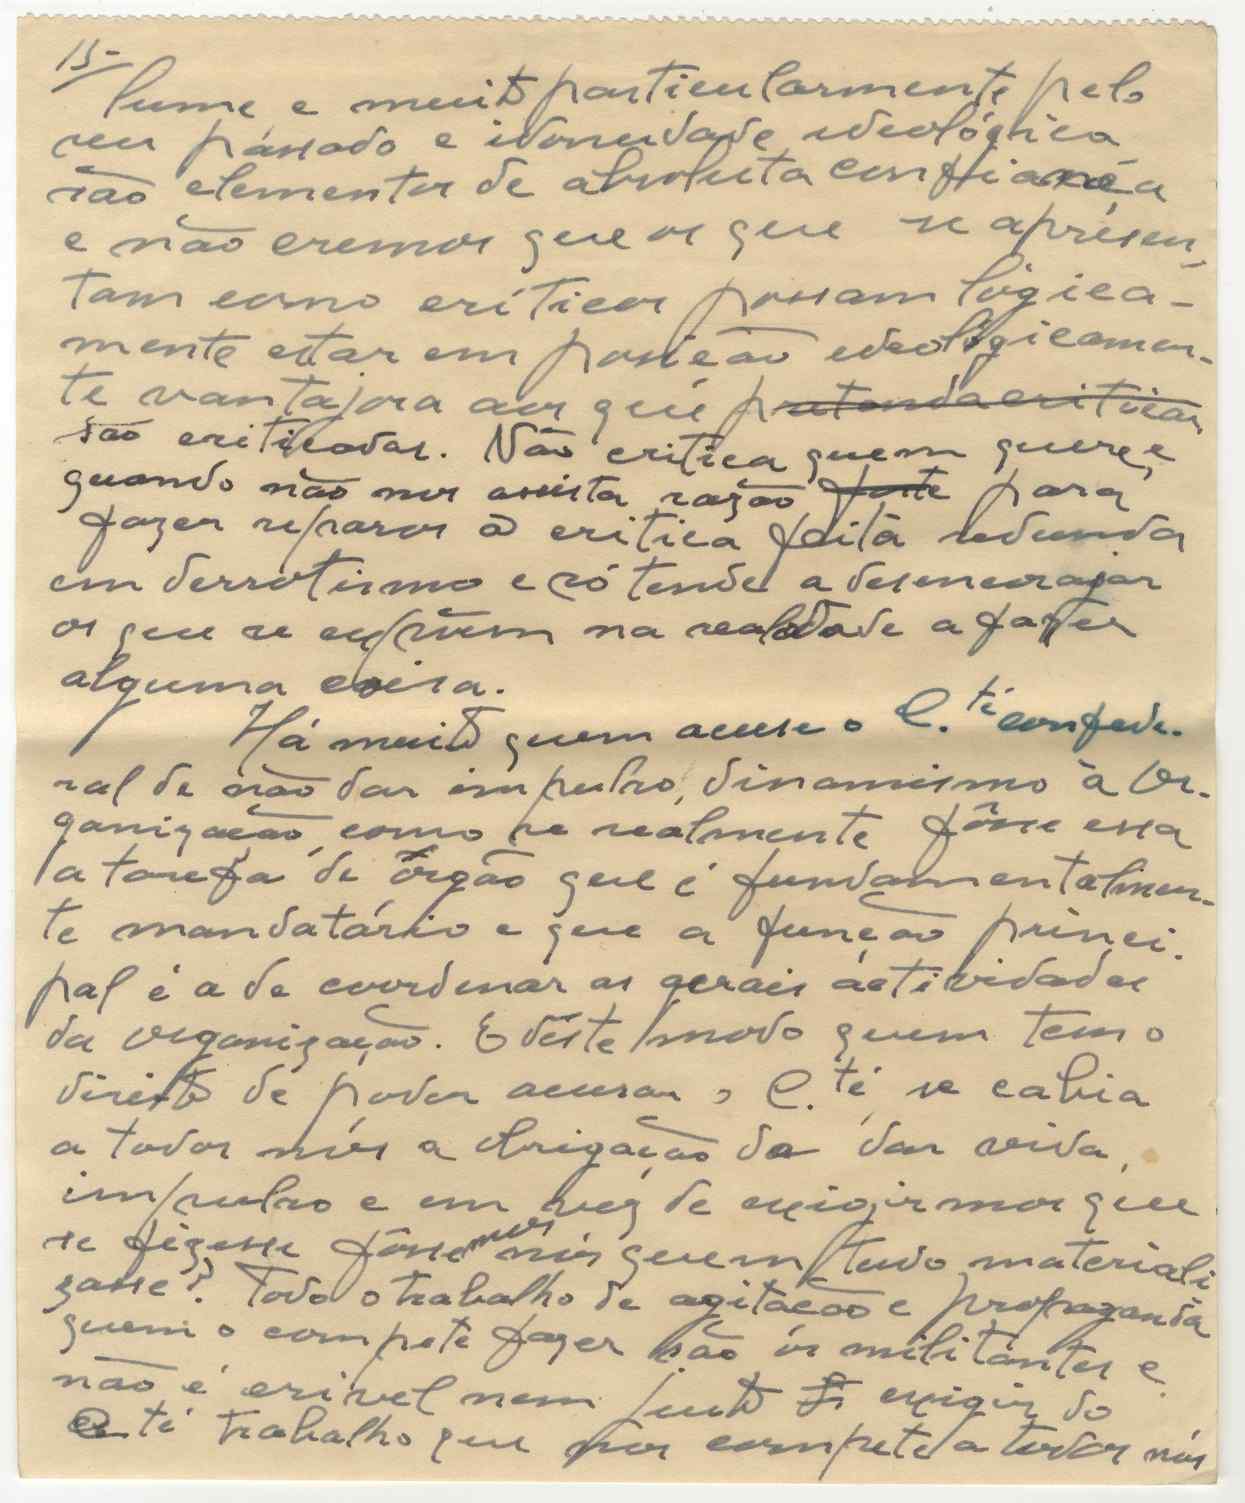 15-
lume e muito particularmente pelo
seu pássado e idoneidade ideológica
são elementos de absoluta confiança
e não cremos que os que se apresen-
tam como críticos possam lógica-
mente estar em posição ideológicamen-
te vantajosa aos que pretenda criticar
são criticados. Não critica quem quere, e
quando não nos assista razão forte para
fazer reparos a critica feita redunda
em derrotismo e só tende a desencorajar
os que se expõem na realidade a fazer
alguma coisa.
Há muito quem acuse o C.té confede-
ral de não dar impulso, dinamismo à Or-
ganização, como se realmente fôsse essa
a tarefa de órgão que é fundamentalmen-
te mandatário e que a função princi-
pal é a de coordenar as gerais actividades
da organização. E dêste modo quem tem o
direito de poder acusar o C.té, se cabia
a todos nós a obrigação de dar vida,
impulso e em vez de exigirmos que
se fizesse fôssemos nós quem tudo materiali
zasse? Todo o trabalho de agitação e propaganda
quem o compete fazer são os militantes e
não é crivel nem justo exigir do
C.té trabalho que nos compete a todos nós